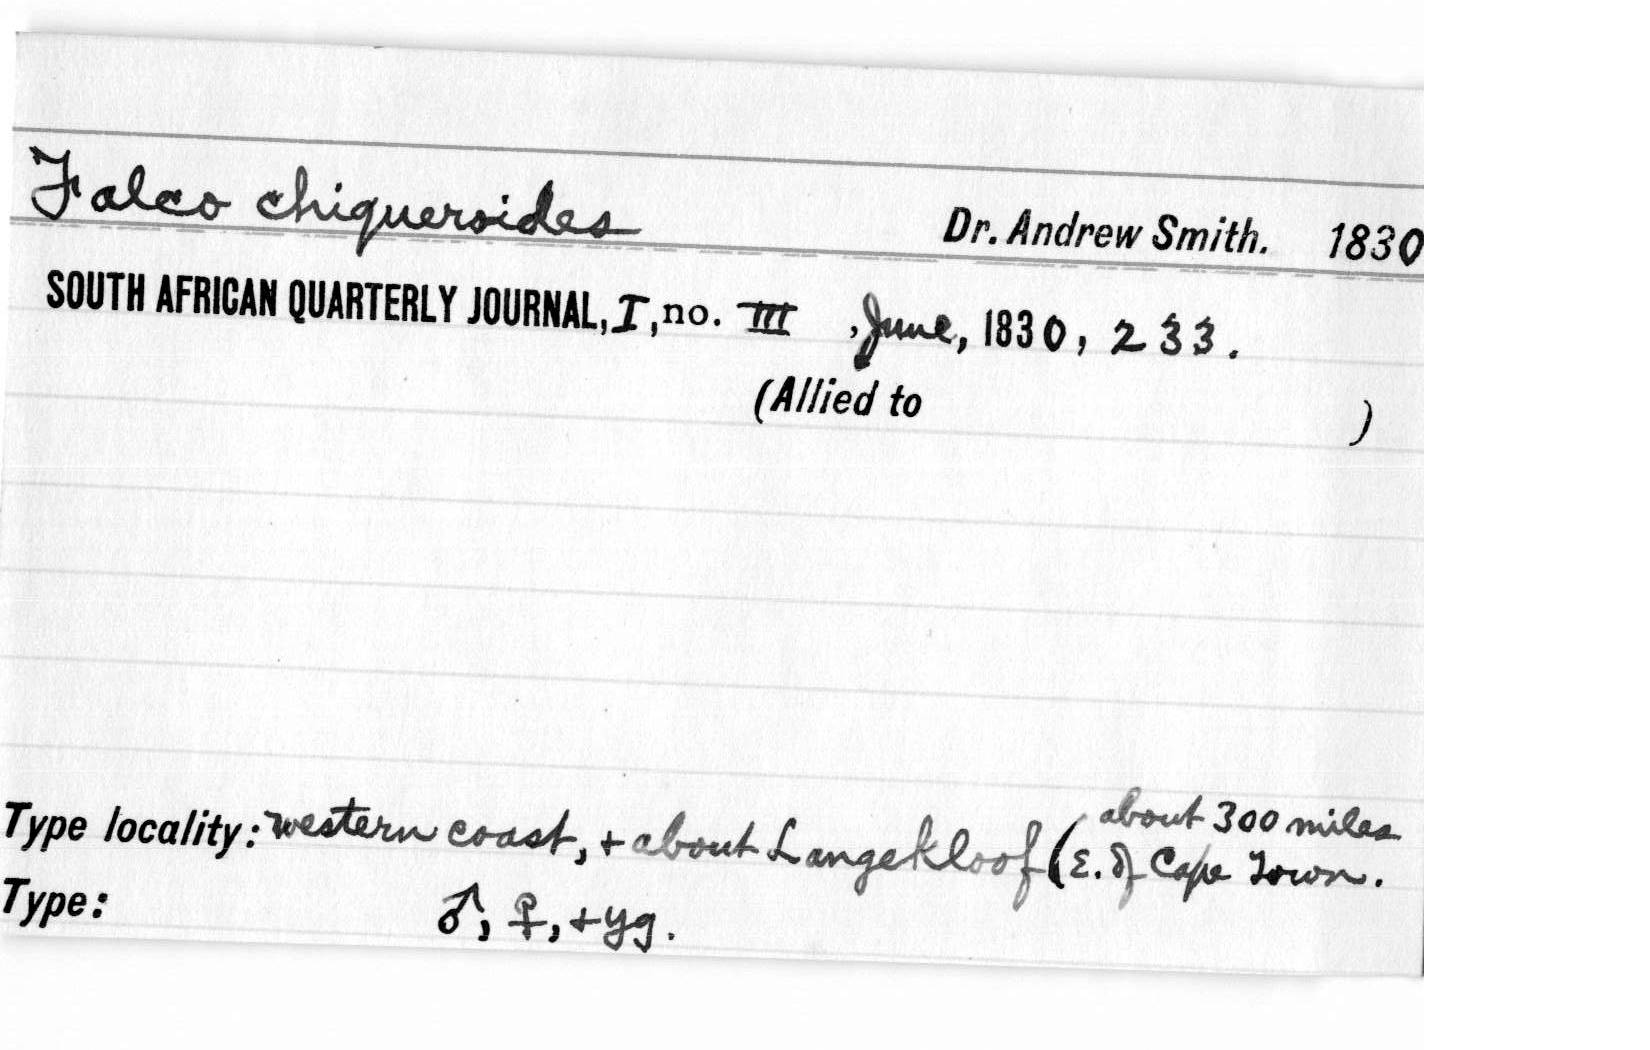 Falco chiqueroides Dr. Andrew Smith. 1830
SOUTH AFRICAN QUARTERLY JOURNAL, I, no. III , June, 1830, 233.
(Allied to )
Type locality: western coast, + about Langekloof (about 300 miles
E. of Cape Town.
Type: ♂, ♀, + yg.